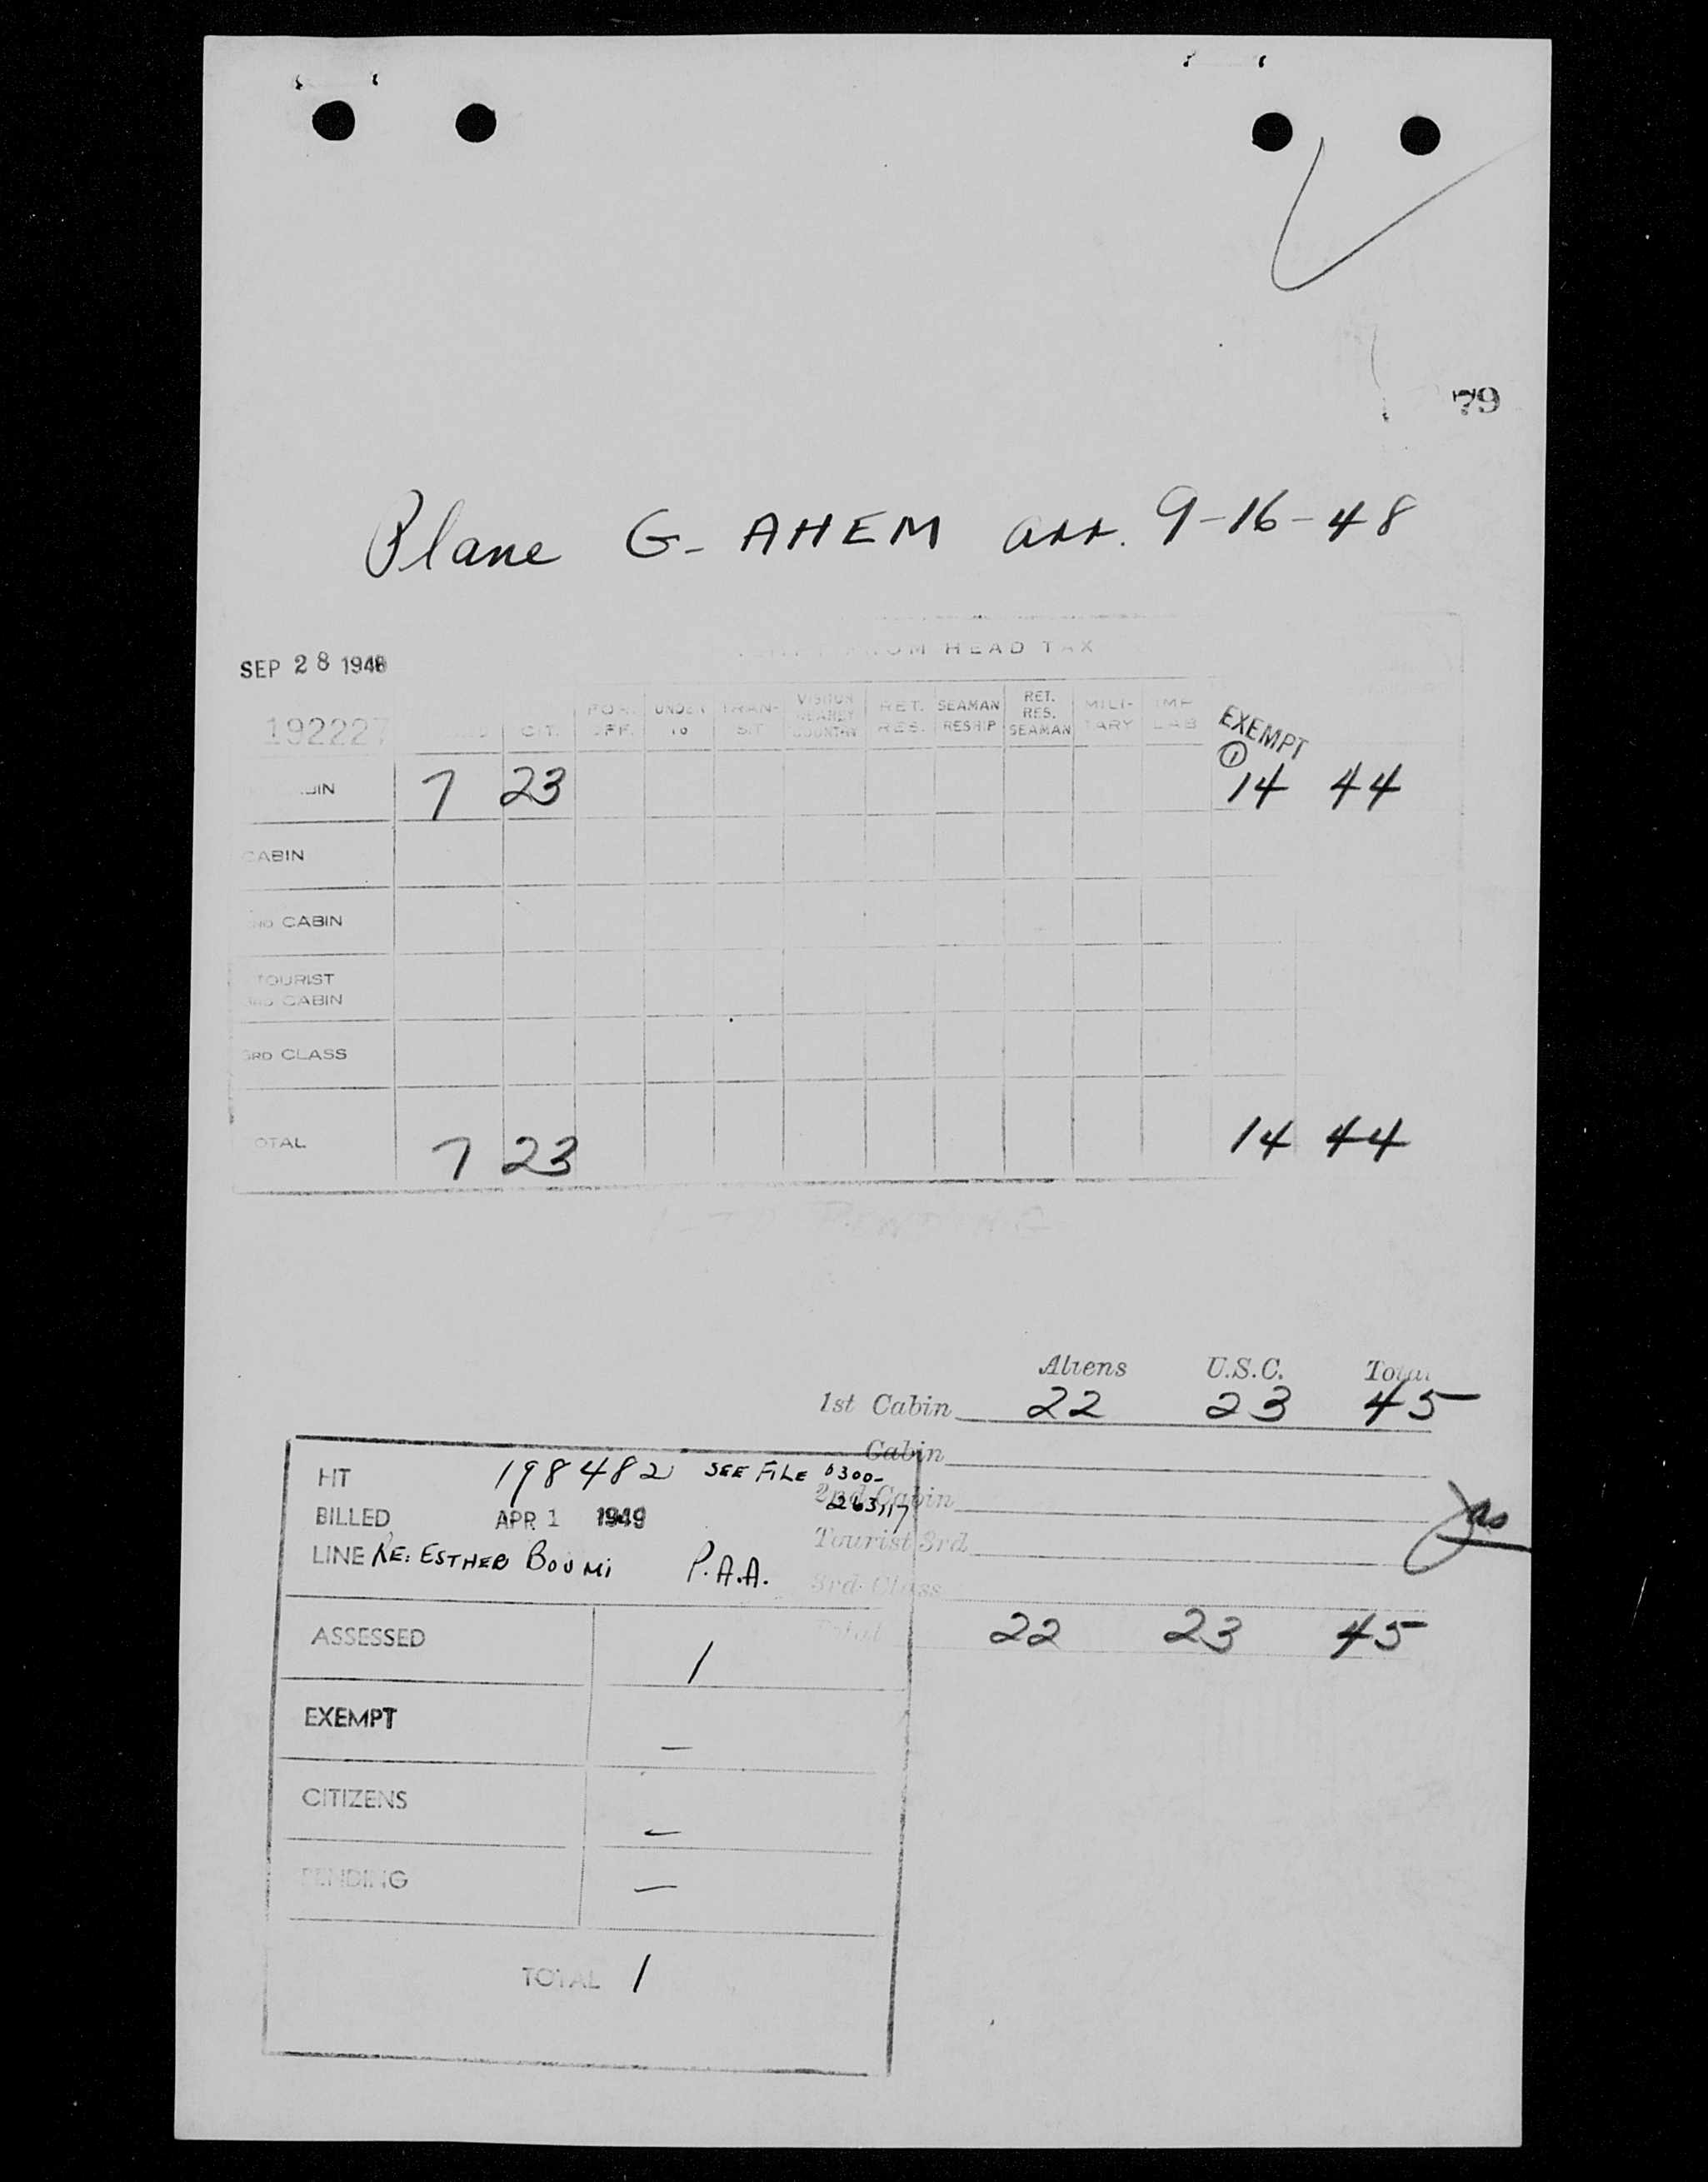 79
Plane G-AHEM arr. 9-16-48
SEP 28 1948
HEAD TAX
192227 CIT. UNDER 16 TRAN-SIT VISITOR NEARBY COUNTRY RET. RES. SEAMAN RESHIP RET. RES. SEAMAN MILI-TARY IMP LAB EXEMPT
1
7 23 14 44
CABIN
2ND CABIN
TOURIST
3RD CABIN
3RD CLASS
TOTAL 7 23 14 44
Aliens U.S.C. Total
1st Cabin 22 23 45
Cabin
2nd Cabin
Tourist 3rd
3rd Class
Total 22 23 45
HT 198482 SEE FILE 0300-
BILLED APR 1 1949
LINE RE: ESTHER BOUMI P.A.A.
ASSESSED 1
EXEMPT –
CITIZENS –
PENDING –
TOTAL 1